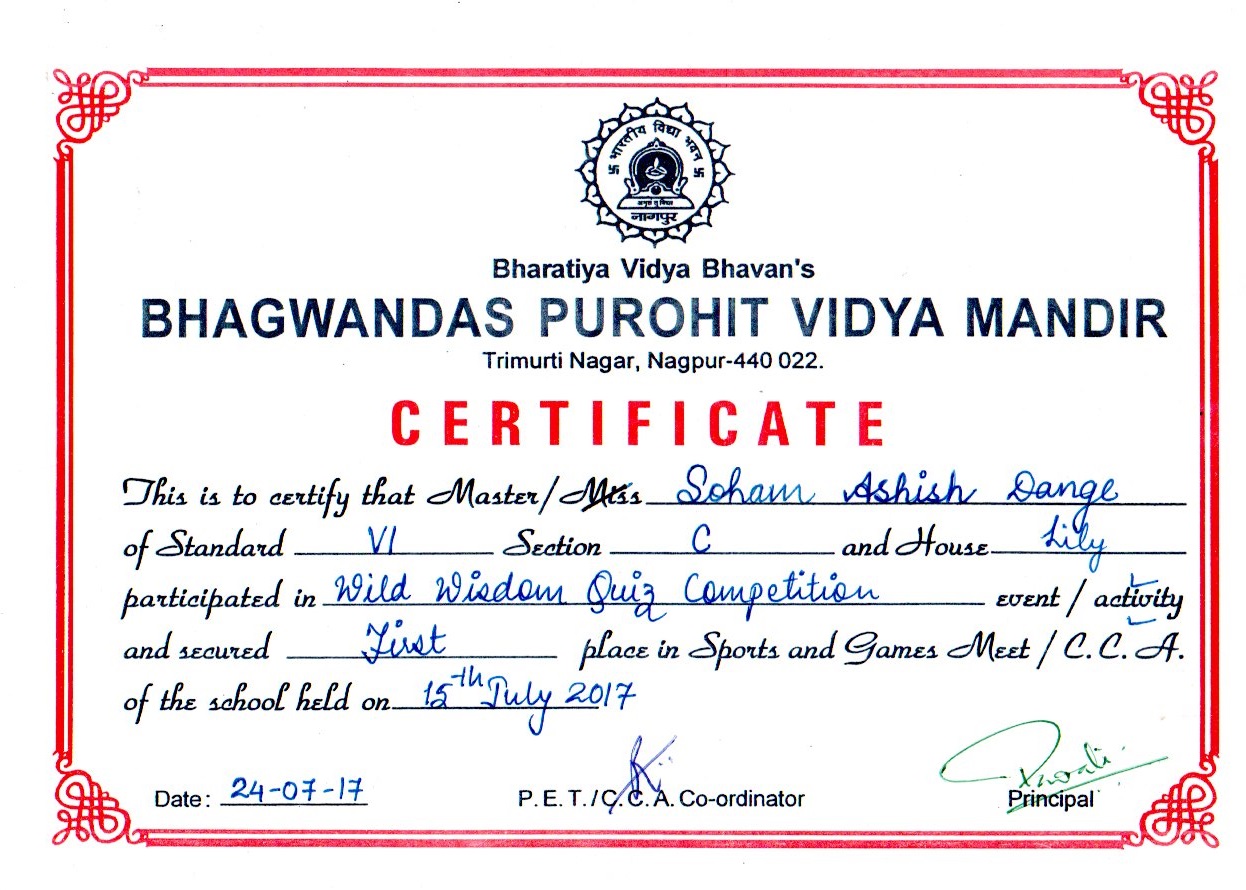 भारतीय विद्या भवन
नागपुर
Bharatiya Vidya Bhavan's
BHAGWANDAS PUROHIT VIDYA MANDIR
Trimurti Nagar, Nagpur-440 022.
CERTIFICATE
This is to certify that Master/Miss Soham Ashish Dange
of Standard VI Section C and House Lily
participated in Wild Wisdom Quiz Competition event / activity
and secured First place in Sports and Games Meet / C. C. A.
of the school held on 15th July 2017
Date: 24-07-17 P. E. T./C.C. A. Co-ordinator Principal